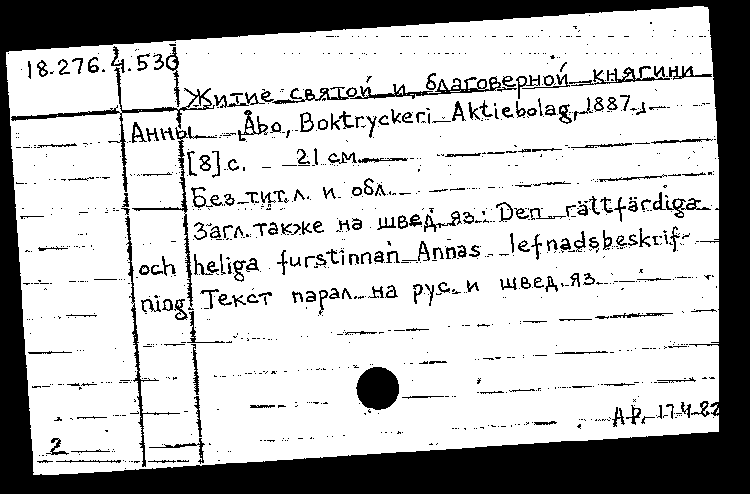 18.276.4.530
Житие святой и благоверной княгини
Анны. [Åbo, Boktryckeri Aktiebolag, 1887.]
[8] с. 21 см.
Без тит. л. и обл.
Загл. также на швед. яз.: Den rättfärdiga
och heliga furstinnan Annas lefnadsbeskrif-
ning. Текст парал. на рус. и швед. яз.
2